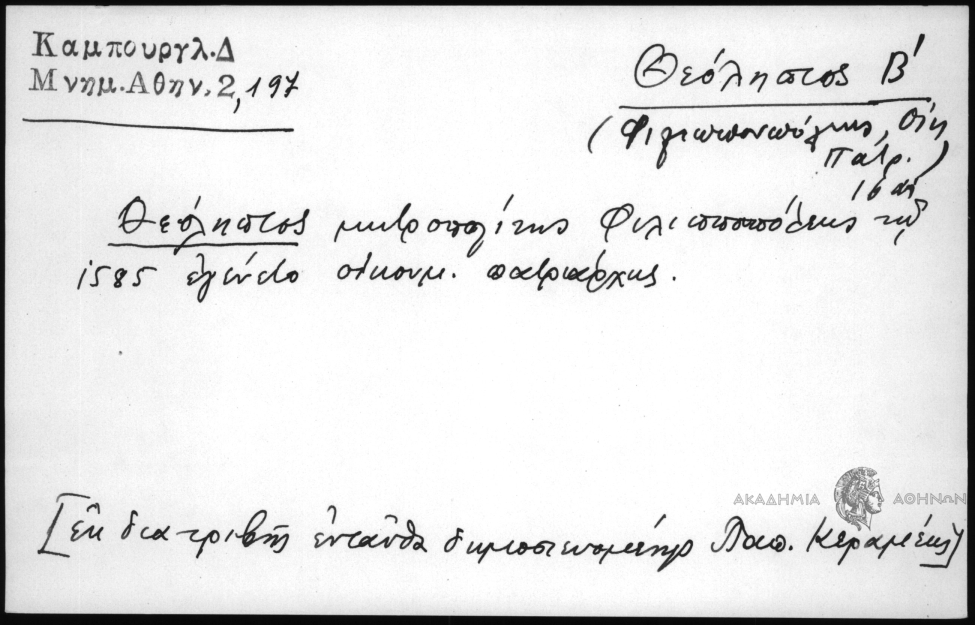 Καμπουργλ.Δ
Μνημ.Αθην.2,197
Θεόληπτος Β'
(Φιλιππουπόλεως, Οἰκ
Πατρ.)
16 αἰ
Θεόληπτος μητροπολίτης Φιλιππουπόλεως τῷ
1585 ἐγένετο οἰκουμ. πατριάρχης.
ΑΚΑΔΗΜΙΑ ΑΘΗΝΩΝ
[ἐκ διατριβῆς ἐνταῦθα δημοσιευομένης Παπ. Κεραμέως]